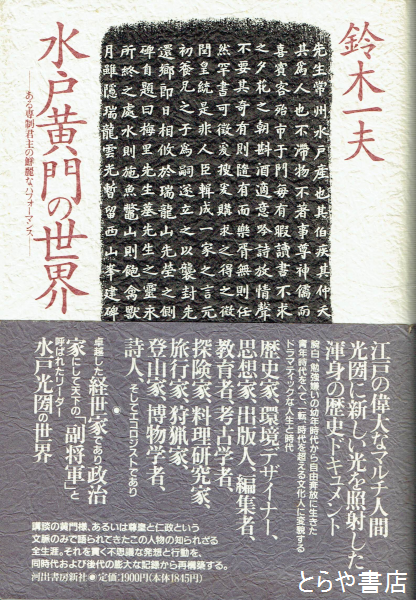 鈴木一夫
先生常州水戸産也其伯疾其仲夭
其為人也不滞物不著事尊神儒而
喜賓客殆市于門毎有暇讀書不求
之夕花之朝斟酒適意吟詩放情聲
不要其奇有則隨有而樂胥無則任
然罕書可徴爰捜爰購求之得之微
閏皇統是非人臣輯成一家之言元
初養兄之子為嗣遂立之以襲封先
還郷即日相攸於瑞龍山先塋之側
碑自題曰梅里先生墓先生之靈永
所終之處水則施魚鼈山則飽禽獣
月雖隠瑞龍雲光暫留西山峯建碑
水戸黄門の世界
——ある専制君主の鮮麗なパフォーマンス——
江戸の偉大なマルチ人間
光圀に新しい光を照射した
渾身の歴史ドキュメント
腕白、勉強嫌いの幼年時代から自由奔放に生きた
青年時代をへて、一転、時代を超える文化人に変貌する
ドラマティックな人生と時代
歴史家、環境デザイナー、
思想家、出版人、編集者、
教育者、考古学者、
探険家、料理研究家、
旅行家、狩猟家、
登山家、博物学者、
詩人、そしてエコロジストであり
卓越した経世家であり政治
家にして天下の「副将軍」と
呼ばれたリーダー
水戸光圀の世界
講談の黄門様、あるいは尊皇と仁政という
文脈のみで語られてきたこの人物の知られざる
全生涯。それを貫く不思議な発想と行動を、
同時代および後代の膨大な記録から再構築する。
河出書房新社 ◎ 定価:1900円(本体1845円)
とらや書店